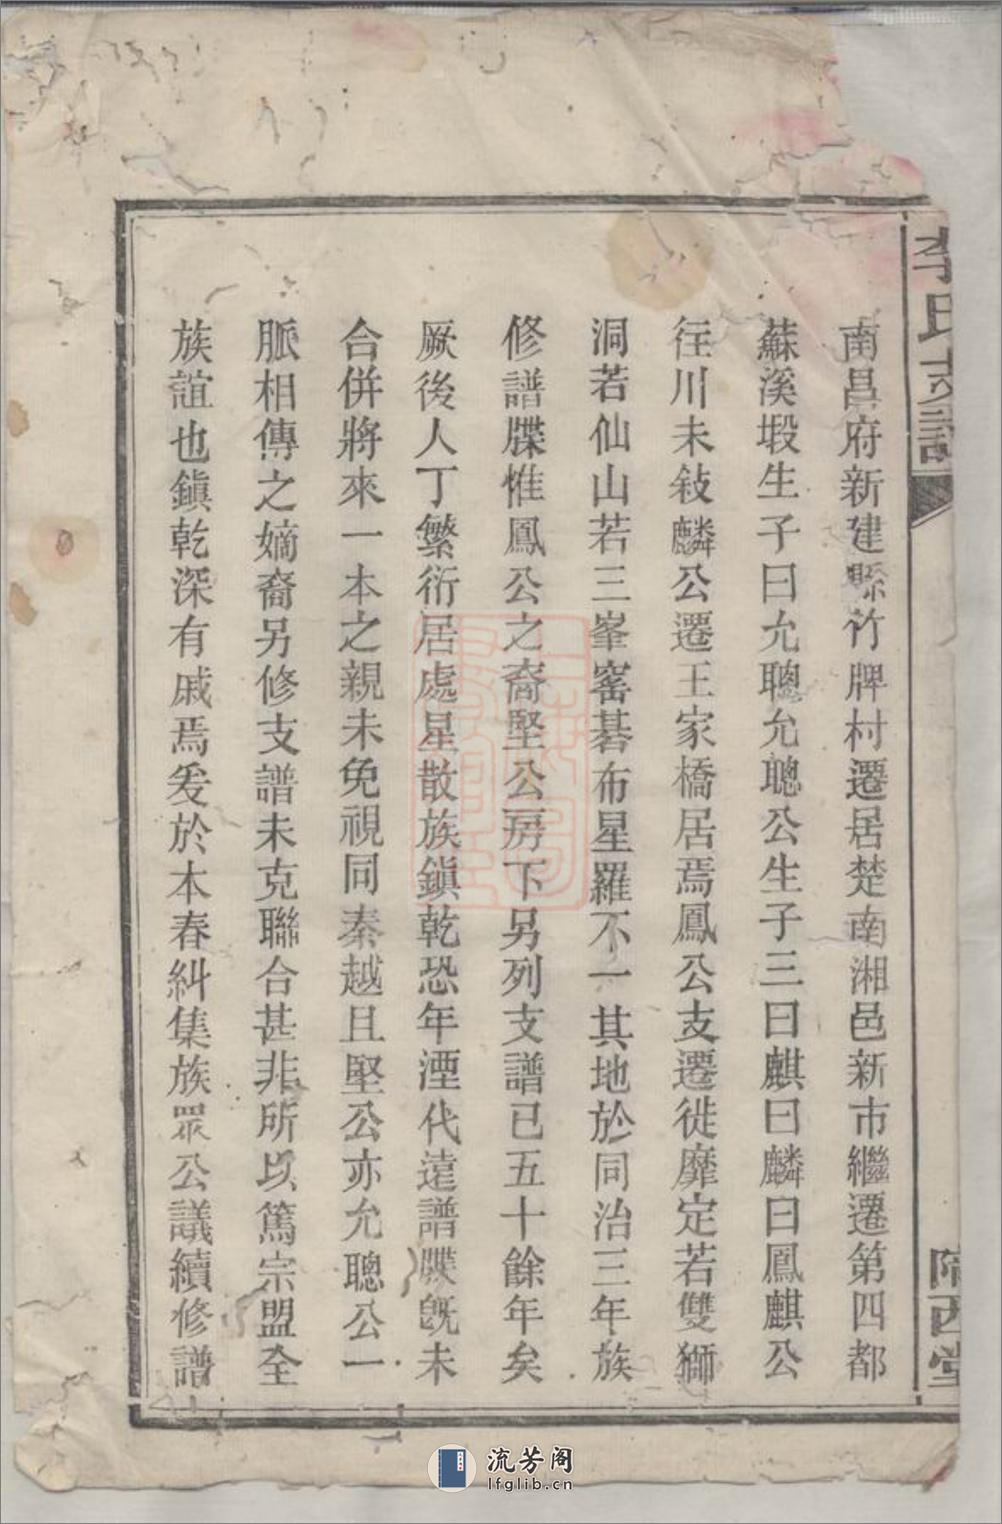 李氏支譜
南昌府新建縣竹牌村遷居楚南湘邑新市繼遷第四都
蘇溪塅生子曰允聰允聰公生子三曰麒曰麟曰鳳麒公
徃川未敍麟公遷王家橋居焉鳳公支遷徙靡定若雙獅
洞若仙山若三峯窰碁布星羅不一其地於同治三年族
修譜牒惟鳳公之裔堅公房下另列支譜已五十餘年矣
厥後人丁繁衍居處星散族鎭乾恐年湮代遠譜牒旣未
合併將來一本之親未免視同秦越且堅公亦允聰公一
脈相傳之嫡裔另修支譜未克聯合甚非所以篤宗盟全
族誼也鎭乾深有戚焉爰於本春糾集族眾公議續修譜
隴西堂
流芳阁
lfglib.cn